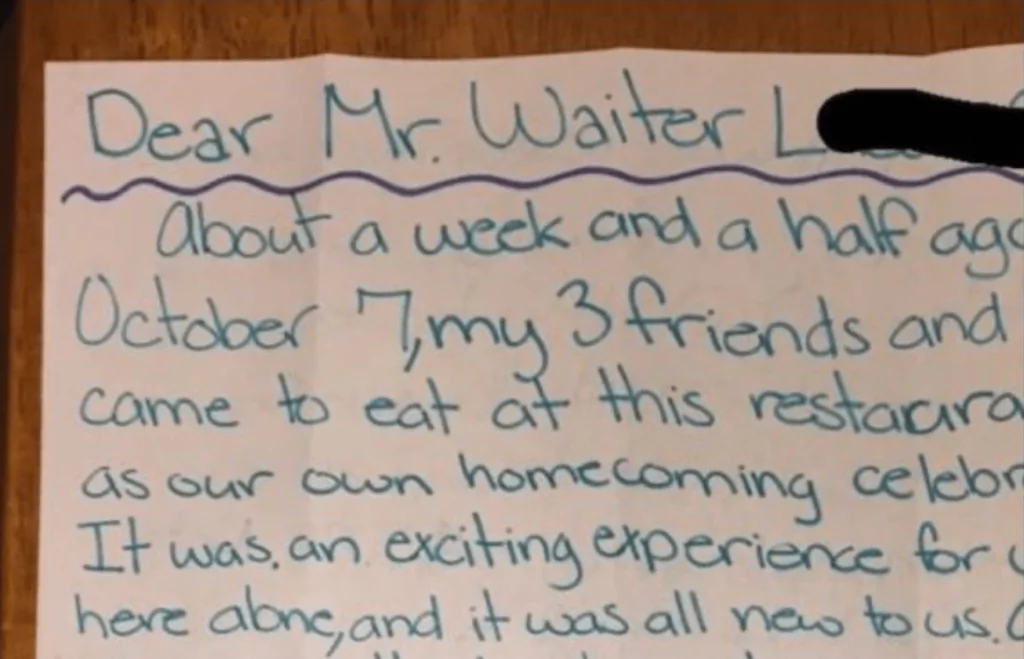 Dear Mr. Waiter L
About a week and a half ago
October 7, my 3 friends and
came to eat at this restaura
as our own homecoming celebr
It was an exciting experience for u
here alone, and it was all new to us.